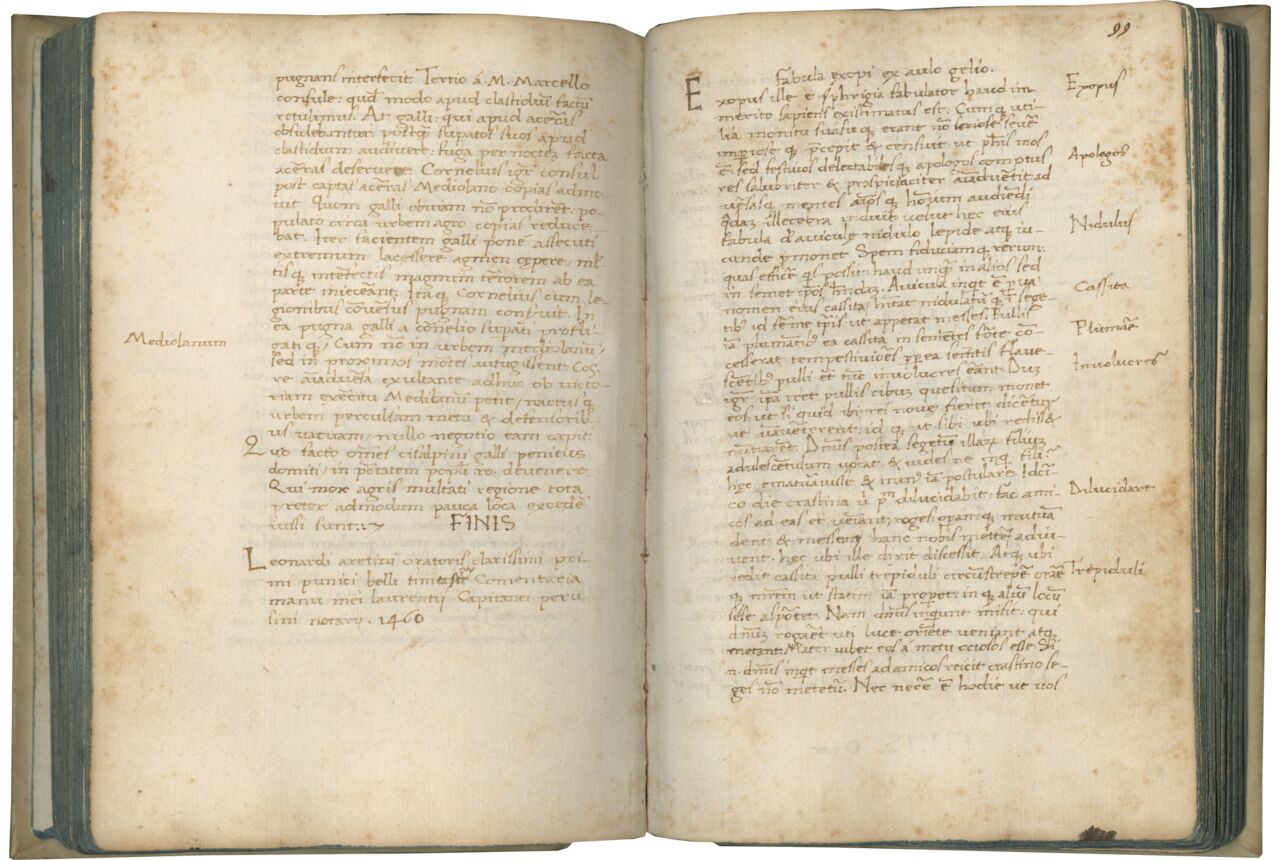 pugnans interfecit. Tertio á M. Marcello
consule: quod modo apud clastidiũ factũ
retulimus. At galli: qui apud acẽras
obsidebantur: postq̃ supatos suos apud
clastidium audivere: fuga per noctez facta
acẽras deseruere. Cornelius igr̃ consul
post captas acẽras Mediolano copias admo-
uit Quom galli obviam nõ prodirẽt: po-
pulato circa urbem agro copias reduce-
bat. Iter facientem galli pone assecuti
extremum lacessere agmen cępere, ml-
tisq̃ interfectis magnum terrorem ab ea
parte iniecẽant. Itaq̃ Cornelius cum le-
gionibus conversus pugnam conseruit. In
ea pugna galli a cornelio supati profli-
gatiq̃, Cum nõ in urbem mediolanũ,
sed in proximos mõtes refugissent: Cos.
re animaduersa exultante adhuc ob victo-
riam exercitu Mediolanũ petit, nactusq̃
urbem perculsam metu & defensorib
us vacuam, nullo negotio eam capit
Quo facto omẽs cisalpini galli penitus
domiti, in ptãtatem popli ro. devenere.
Qui mox agris multati regione tota
preter admodum pauca loca excedẽ
iussi sunt:~
FINIS
Leonardi aretini oratoris clarissimi pri
mi punici belli finit Comentaria
manu mei laurentij Capitanei peru
sini notarij. 1460
Mediolanum
99
Fabula exopi ex aulo gelio.
Exopus ille e phrigia fabulator haud im
merito sapiens existimatus est: Cumq̃ uti-
lia monitu suasuq̃ erant nõ seriose seuẽ
imperioseq̃ precepit & censuit ut phis mos
ẽ: sed festivos delectabilesq̃ apologos comptus
res salubriter & prospicaciter aiaduersas: ad
mentes aiosq̃ hoium audiendi
q̃daz illecebra induit velut hec eius
fabula d̃ avicule nidulo lepide atq̃ iu-
cunde pmonet Spem fiduciamq̃ rerum:
quas efficẽ qs possit: haud unq̃ in alios sed
in semet ipos hñdaz. Avicula inqt ẽ parva
nomen eius cassita: hitat nidulaturq̃ in sege-
tib; id ferme tpis ut appetat messes: Pullis
iã plumãtib; ea cassita in semẽtes forte cõ-
cesserat tempestiviores: pp ea segetis flave-
scẽtib; pulli etiã tũc involucres erant. Duz
igr̃ ipa iret pullis cibum quesitum monet
eos ut si quid ibi rei nove fieret diceretur
ve animaduerterent: idq̃ ut sibi ubi redisset
nũtiarent. Dnus postea segetum illarum filium
adulescentulum vocat & vides ne inq̃t fili
hęc ematuruisse & manus iã postulare. Idci-
co die crastina ubi pm̃ dilucidabit: fac ami-
cos ad eas et veniant roges: opamq̃ mutua
dent: & messem hanc nobis metere adiu-
vent. hęc ubi ille dixit discessit. Atq̃ ubi
redit cassita pulli trepiduli circũstrepere orare
q̃ matrem ut statim iã properet: inq̃ alium locũ
sese asportet. Nam dnus inquiunt misit: qui
amicos rogaret uti luce oriente veniant atq̃
metant. Mater iubet eos á metu ociosos esse. Si
n. dnus inqt messes ad amicos reicit crastino se-
ges nõ metetur. Nec necẽ ẽ hodie ut vos
Exopus
Apologos
Nidulus
Cassita
Plumãe
Involucres
Dilucidare
Trepiduli